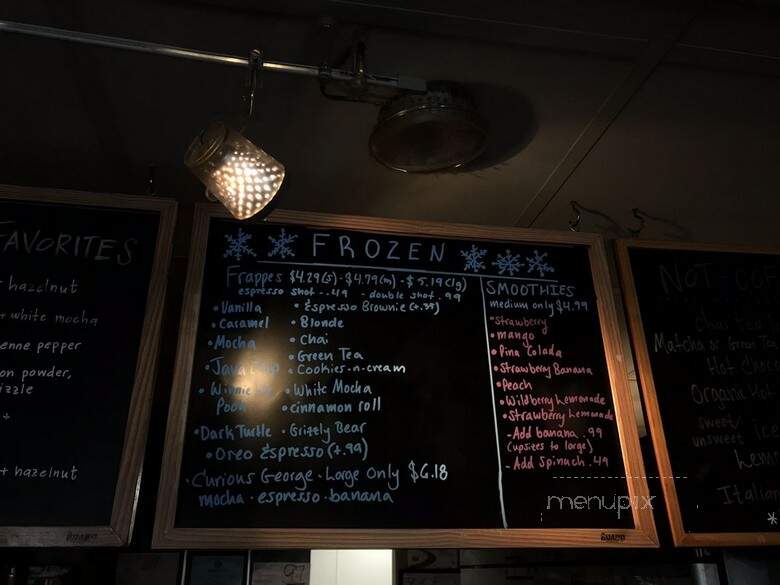 FAVORITES
hazelnut
+ white mocha
enne pepper
on powder,
izzle
+
+ hazelnut
FROZEN
Frappes $4.29(s) - $4.79(m) - $5.19(lg)
espresso shot - .49 - double shot .99
• Vanilla
• Caramel
• Mocha
• Java
• Winnie
Pooh
• Dark Turtle
• Oreo Espresso (+.99)
• Espresso Brownie
• Blonde
• Chai
• Green Tea
• Cookies-n-cream
• White Mocha
• cinnamon roll
• Grizzly Bear
• Curious George - Large Only $6.18
mocha - espresso - banana
SMOOTHIES
medium only $4.99
• Strawberry
• mango
• Pina Colada
• Strawberry Banana
• Peach
• Wildberry Lemonade
• Strawberry Lemonade
- Add banana .99
(upsizes to large)
- Add Spinach .49
menupix
Matcha or Green Tea
Hot
Organic Hot
sweet/
unsweet
Italian